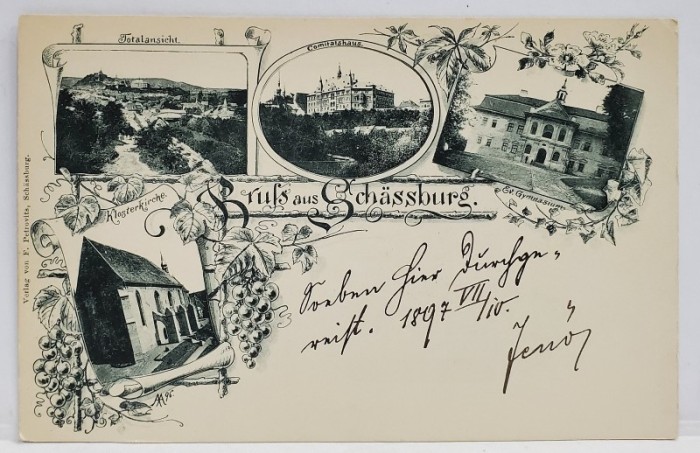 Totalansicht.
Comitatshaus.
Ev. Gymnasium.
Gruss aus Schässburg.
Klosterkirche.
Verlag von F. Petrovits, Schässburg.
Soeben hier durchge-
reist. 1897 VII/10.
Jenö